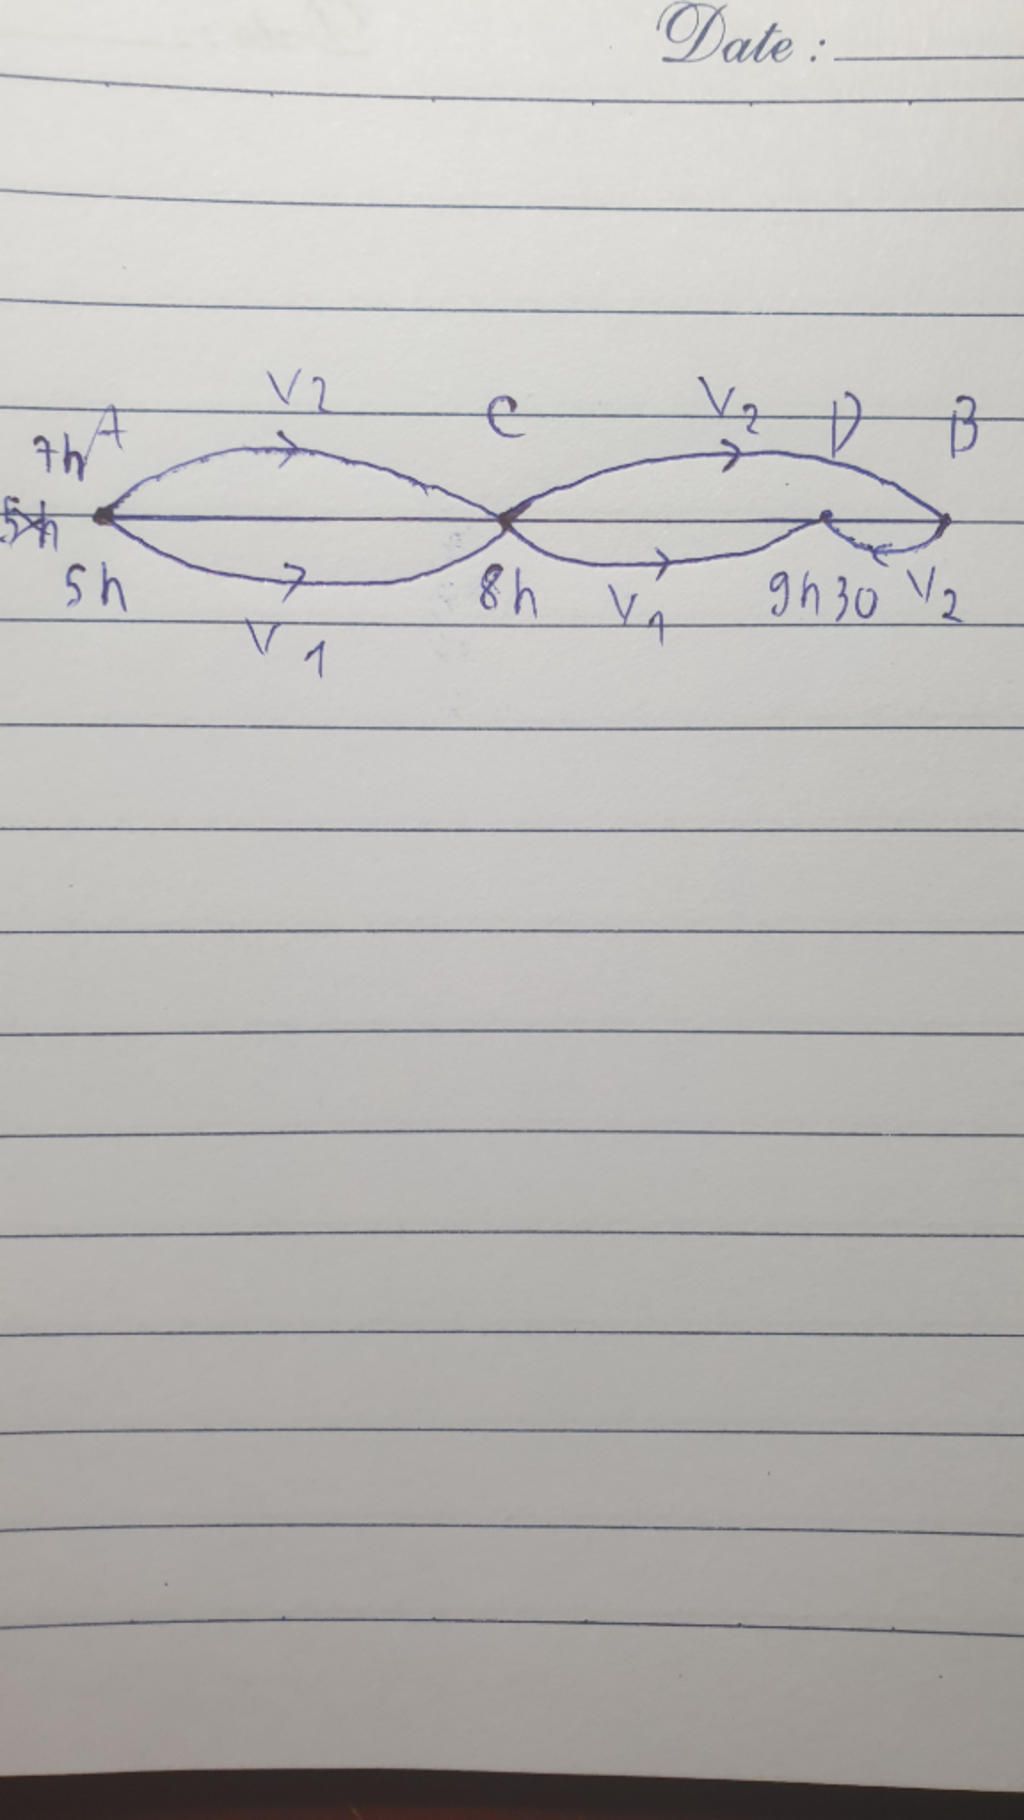 Date :
V2 C V2 D B
7h A
5h 8h V1 9h30 V2
V1